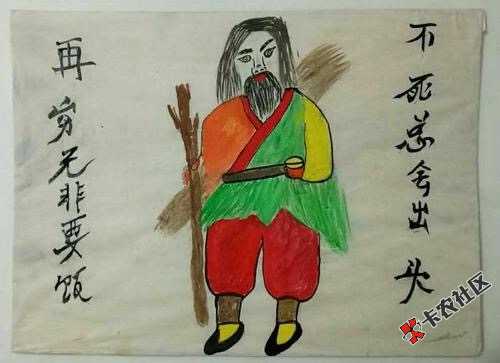 再穷无非要饭
不死总会出头
卡农社区